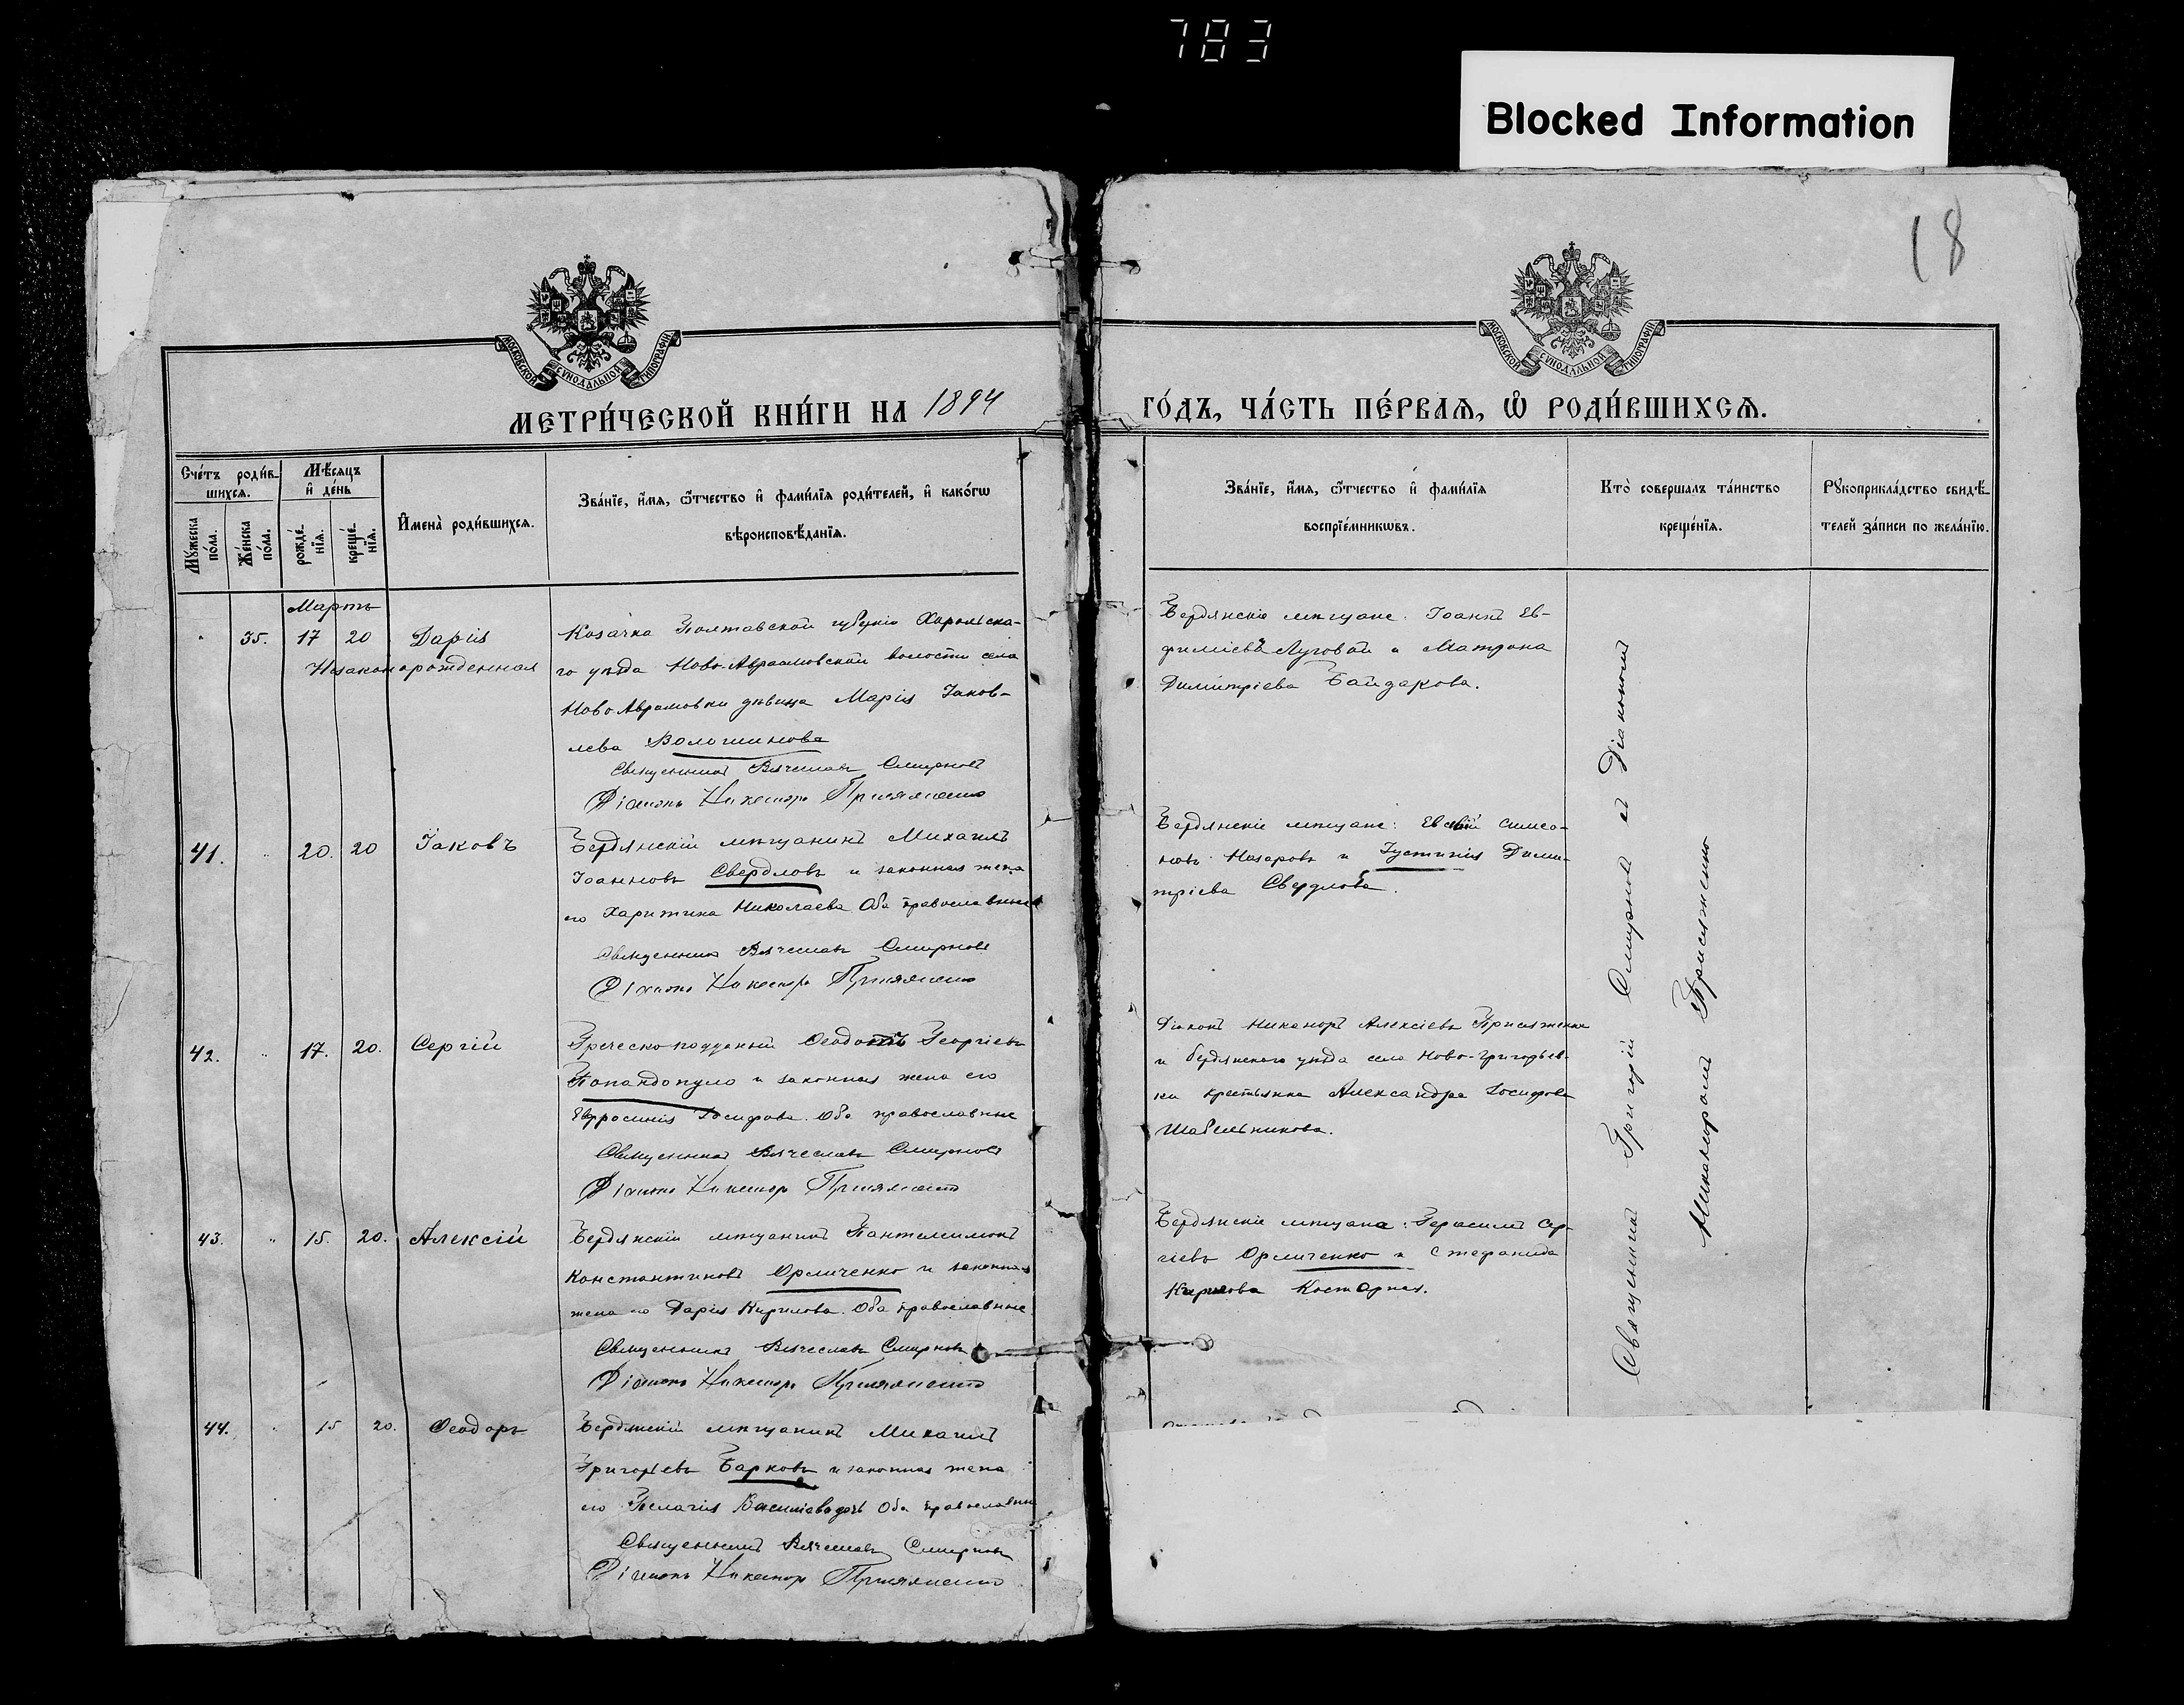 783
Blocked Information
18
МОСКОВСКОЙ СУНОДАЛЬНОЙ ТИПОГРАФІИ
МОСКОВСКОЙ СУНОДАЛЬНОЙ ТИПОГРАФІИ
МЕТРИ́ЧЕСКОЙ КНИ́ГИ НА 1894
ГО́ДЪ, ЧА́СТЬ ПЕ́РВАѦ, Ѡ҆ РОДИ́ВШИХСѦ.
Сче́тъ роди́в-
шихсѧ.
Мꙋ́жеска по́ла.
Же́нска по́ла.
Мѣ́сѧцъ
и҆ де́нь
рожде́-
нїѧ.
креще́-
нїѧ.
И҆мена̀ роди́вшихсѧ.
Зва́нїе, и҆́мѧ, ѻ҆́тчество и҆ фами́лїѧ роди́телей, и҆ како́гѡ
вѣроисповѣ́данїѧ.
Зва́нїе, и҆́мѧ, ѻ҆́тчество и҆ фами́лїѧ
воспрїе́мникѡвъ.
Кто̀ соверша́лъ та́инство
креще́нїѧ.
Рꙋкоприкла́дство свидѣ́-
телей за́писи по жела́нїю.
Мартъ
35. 17 20 Дарія
Незаконорожденная
Козачка Полтавской губерніи Хорольска-
го уѣзда Ново-Авраамовской волости села
Ново-Аврамовки дѣвица Марія Іаков-
лева Волошинова
Священникъ Вячеславъ Смирновъ
Діаконъ Никаноръ Присяженко
Бердянскіе мѣщане: Іоаннъ Ев-
фиміевъ Луговой и Матрона
Димитріева Байдакова.
41. 20. 20 Іаковъ
Бердянскій мѣщанинъ Михаилъ
Іоанновъ Свердловъ и законная жена
его Харитина Николаева Оба православные
Священникъ Вячеславъ Смирновъ
Діаконъ Никаноръ Присяженко
Бердянскіе мѣщане: Симео-
новъ Назаровъ и Іустинія Дими-
тріева Свердлова.
42. 17. 20. Сергій
Греческо-подданый Ѳеодотъ Георгіевъ
Попандопуло и законная жена его
Евфросинія Іосифова. Оба православные
Священникъ Вячеславъ Смирновъ
Діаконъ Никаноръ Присяженко
Діаконъ Никаноръ Алексіевъ Присяженко
и бердянскаго уѣзда села Ново-Григорьев-
ки крестьянка Александра Іосифова
Шабельникова.
43. 15. 20. Алексій
Бердянскій мѣщанинъ Пантелимонъ
Константиновъ Орличенко и законная
жена его Дарія Кирилова. Оба православные
Священникъ Вячеславъ Смирновъ
Діаконъ Никаноръ Присяженко
Бердянскіе мѣщане: Герасимъ Сер-
гіевъ Орличенко и Стефанида
Кирилова Костарная.
44. 15 20. Ѳеодоръ
Бердянскій мѣщанинъ Михаилъ
Григорьевъ Барковъ и законная жена
его Пелагія Оба православные
Священникъ Вячеславъ Смирновъ
Діаконъ Никаноръ Присяженко
Священникъ Григорій Смирновъ съ Діакономъ
Никаноромъ Присяженко